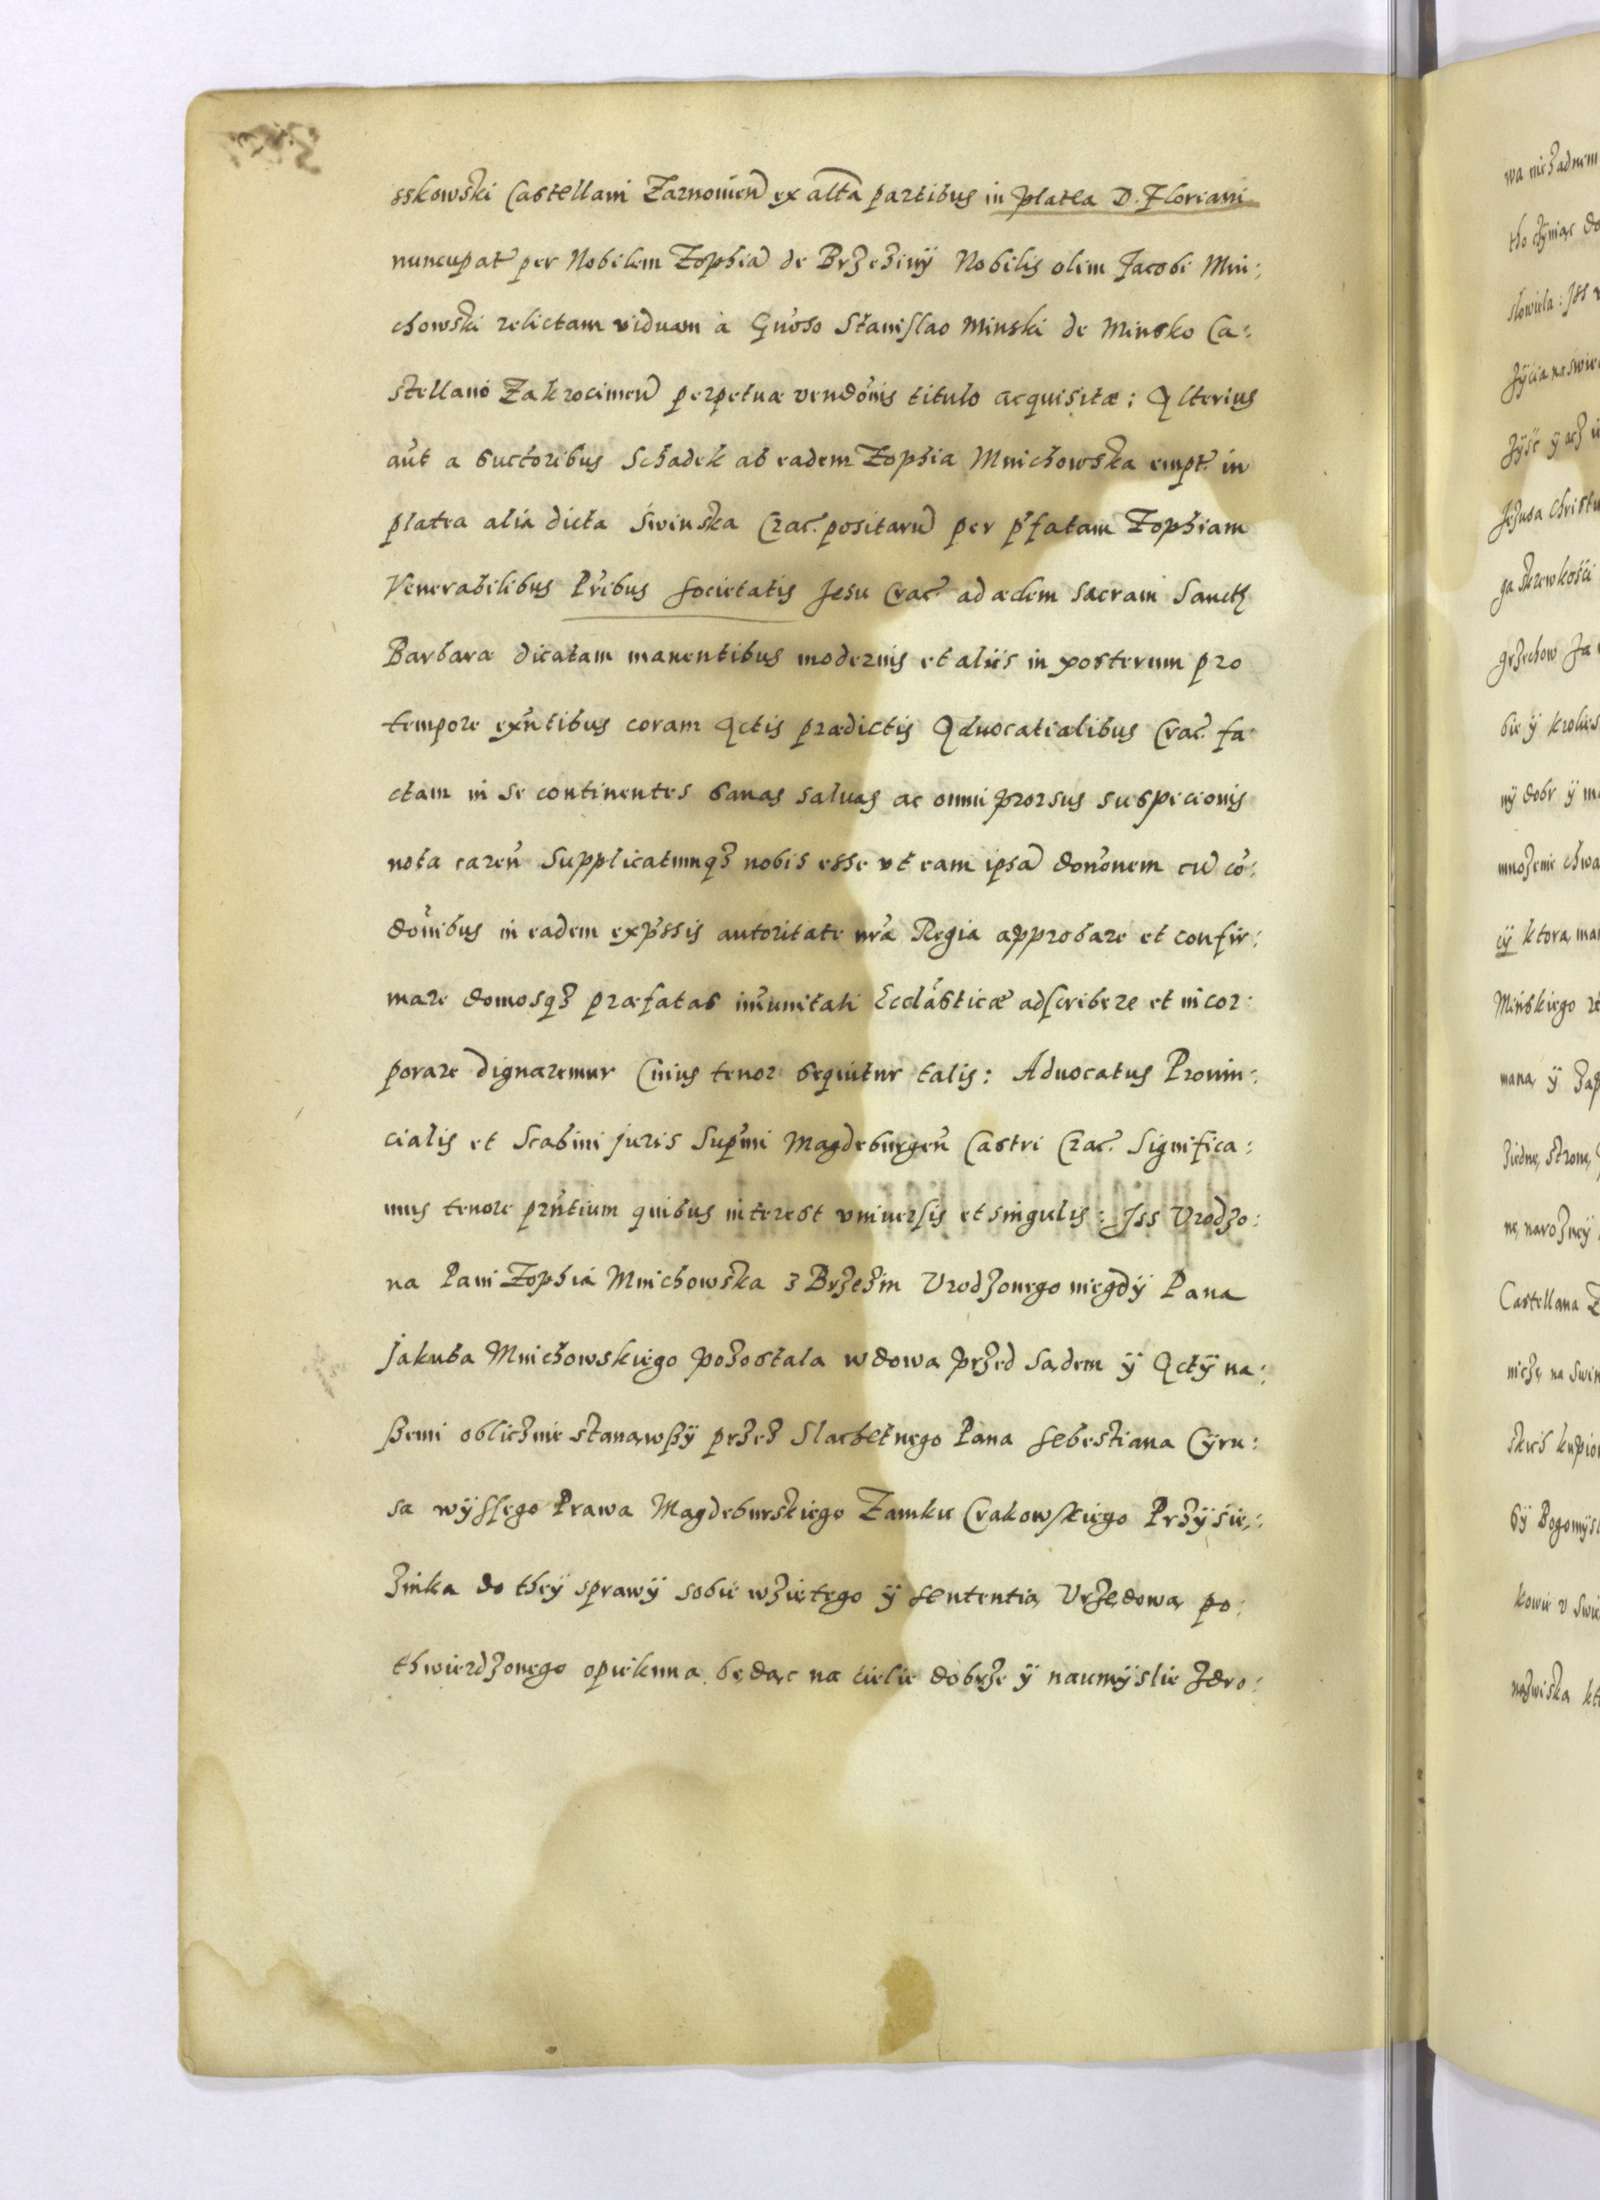 sskowski Castellani Zarnovien ex alta partibus in platea D. Floriani
nuncupat per Nobilem Zophia de Brzeziny Nobilis olim Jacobi Mni:
chowski relictam viduam à Gnoso Stanislao Minski de Minsko Ca:
stellano Zakrocimen perpetuæ vendonis titulo acquisitæ: Alterius
aut a suctoribus Schadek ab eadem Zophia Mnichowska empt in
platea alia dicta Swinska Crac. positaru per pfatam Zophiam
Venerabilibus Pribus Societatis Jesu Crac ad ædem sacram Sanctæ
Barbaræ dicatam manentibus modernis et aliis in posterum pro
tempore exntibus coram Actis prædictis Advocatialibus Crac. fa
ctam in se continentes sanas salvas ac omni prorsus suspicionis
nota caren Supplicatumqz nobis esse vt eam ipsa dononem cu co:
donibus in eadem expssis autoritate nra Regia approbare et confir:
mare domosqz præfatas imunitati Ecclasticæ adscribere et incor:
porare dignaremur Cuius tenor sequitur talis: Advocatus Provin:
cialis et Scabini juris Supmi Magdeburgen Castri Crac. Significa:
mus tenore pntium quibus interest vniversis et singulis: Jss Vrodzo:
na Pani Zophia Mnichowska z Brzezin Vrodzonego niegdÿ Pana
Jakuba Mnichowskiego pozostala wdowa przed Sądem ÿ Actÿ na:
szemi oblicznie stanąwszÿ przez Slachetnego Pana Sebestiana Cÿru:
sa wÿssego Prawa Magdeburskiego Zamku Crakowskiego Przÿsię:
znika do theÿ sprawÿ sobie wziętego ÿ sententią Vrzedową po:
thwierdzonego opiekuna będąc na ciele dobrze ÿ na umÿslie zdro: